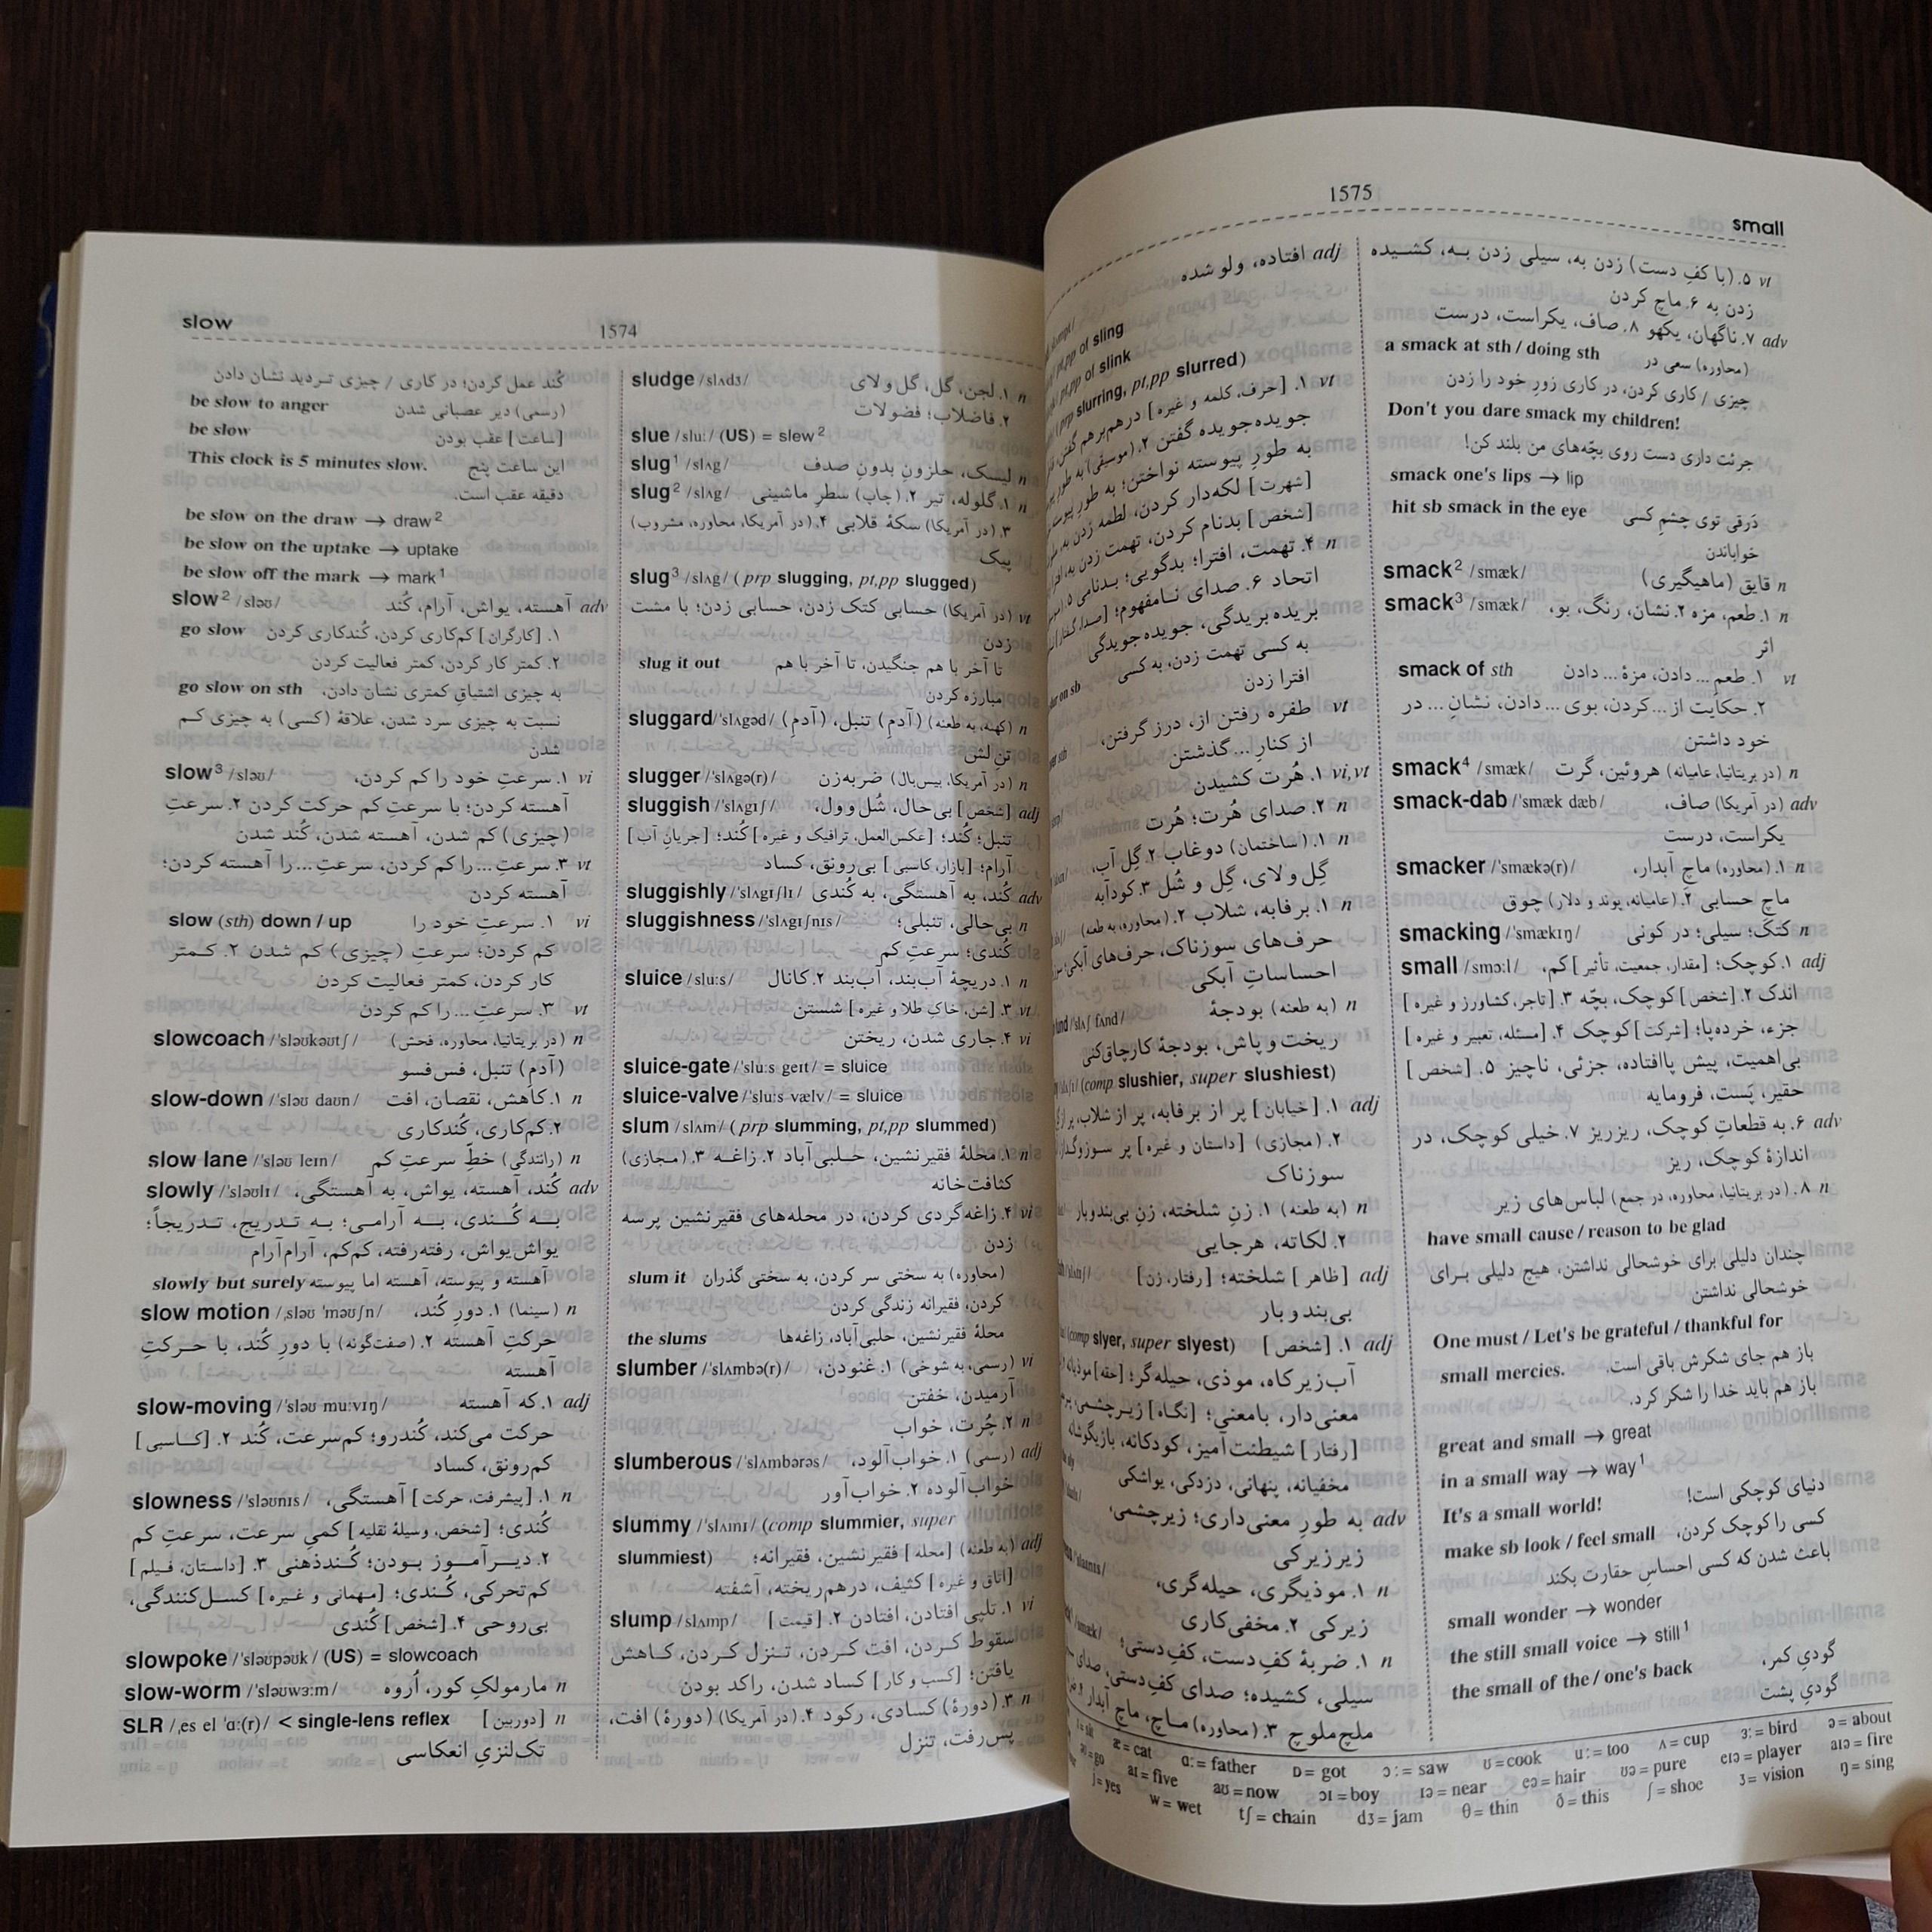 slow
1574
کُند عمل کردن؛ در کاری / چیزی تردید نشان دادن
be slow to anger (رسمی) دیر عصبانی شدن
be slow [ساعت] عقب بودن
This clock is 5 minutes slow. این ساعت پنج
دقیقه عقب است.
be slow on the draw → draw²
be slow on the uptake → uptake
be slow off the mark → mark¹
slow² /sləʊ/ adv آهسته، یواش، آرام، کُند
go slow ۱. [کارگران] کم‌کاری کردن، کُندکاری کردن
۲. کمتر کار کردن، کمتر فعالیت کردن
go slow on sth به چیزی اشتیاقِ کمتری نشان دادن،
نسبت به چیزی سرد شدن، علاقهٔ (کسی) به چیزی کم
شدن
slow³ /sləʊ/ vi ۱. سرعتِ خود را کم کردن،
آهسته کردن؛ با سرعتِ کم حرکت کردن ۲. سرعتِ
(چیزی) کم شدن، آهسته شدن، کُند شدن
vt ۳. سرعتِ ... را کم کردن، سرعتِ ... را آهسته کردن؛
آهسته کردن
slow (sth) down / up vi ۱. سرعتِ خود را
کم کردن؛ سرعتِ (چیزی) کم شدن ۲. کمتر
کار کردن، کمتر فعالیت کردن
vt ۳. سرعتِ ... را کم کردن
slowcoach /ˈsləʊkəʊtʃ/ n (در بریتانیا، محاوره، فحش)
(آدمِ) تنبل، فس‌فسو
slow-down /ˈsləʊ daʊn/ n ۱. کاهش، نقصان، افت
۲. کم‌کاری، کُندکاری
slow lane /ˈsləʊ leɪn/ n (رانندگی) خطِّ سرعتِ کم
slowly /ˈsləʊlɪ/ adv کُند، آهسته، یواش، به آهستگی،
به کُندی، به آرامی؛ به تدریج، تدریجاً؛
یواش‌یواش، رفته‌رفته، کم‌کم، آرام‌آرام
slowly but surely آهسته و پیوسته، آهسته اما پیوسته
slow motion /ˌsləʊ ˈməʊʃn/ n (سینما) ۱. دورِ کُند،
حرکتِ آهسته ۲. (صفت‌گونه) با دورِ کُند، با حرکتِ
آهسته
slow-moving /ˈsləʊ muːvɪŋ/ adj ۱. که آهسته
حرکت می‌کند، کُندرو؛ کم‌سرعت، کُند ۲. [کاسبی]
کم‌رونق، کساد
slowness /ˈsləʊnɪs/ n ۱. [پیشرفت، حرکت] آهستگی،
کُندی؛ [شخص، وسیلهٔ نقلیه] کمیِ سرعت، سرعتِ کم
۲. دیرآموز بودن؛ کُندذهنی ۳. [داستان، فیلم]
کم‌تحرکی، کُندی؛ [مهمانی و غیره] کسل‌کنندگی،
بی‌روحی ۴. [شخص] کُندی
slowpoke /ˈsləʊpəʊk/ (US) = slowcoach
slow-worm /ˈsləʊwɜːm/ n مارمولکِ کور، اُروه
SLR /ˌes el ˈɑː(r)/ < single-lens reflex n [دوربین]
تک‌لنزیِ انعکاسی
sludge /slʌdʒ/ n ۱. لجن، گل، گل و لای
۲. فاضلاب؛ فضولات
slue /sluː/ (US) = slew²
slug¹ /slʌg/ n لیسک، حلزونِ بدونِ صدف
slug² /slʌg/ n ۱. گلوله، تیر ۲. (چاپ) سطرِ ماشینی
۳. (در آمریکا) سکهٔ قلابی ۴. (در آمریکا، محاوره، مشروب)
پیک
slug³ /slʌg/ (prp slugging, pt,pp slugged)
vt (در آمریکا) حسابی کتک زدن، حسابی زدن؛ با مشت
زدن
slug it out تا آخر با هم جنگیدن، تا آخر با هم
مبارزه کردن
sluggard /ˈslʌgəd/ n (کهنه، به طعنه) (آدمِ) تنبل، (آدمِ)
تنِ لش
slugger /ˈslʌgə(r)/ n (در آمریکا، بیس‌بال) ضربه‌زن
sluggish /ˈslʌgɪʃ/ adj [شخص] بی‌حال، شُل و ول،
تنبل؛ کُند؛ [عکس‌العمل، ترافیک و غیره] کُند؛ [جریانِ آب]
آرام؛ [بازار، کاسبی] بی‌رونق، کساد
sluggishly /ˈslʌgɪʃlɪ/ adv کُند، به آهستگی، به کُندی
sluggishness /ˈslʌgɪʃnɪs/ n بی‌حالی، تنبلی؛
کُندی؛ سرعتِ کم
sluice /sluːs/ n ۱. دریچهٔ آب‌بند، آب‌بند ۲. کانال
vt ۳. [شن، خاکِ طلا و غیره] شستن
vi ۴. جاری شدن، ریختن
sluice-gate /ˈsluːs geɪt/ = sluice
sluice-valve /ˈsluːs vælv/ = sluice
slum /slʌm/ (prp slumming, pt,pp slummed)
n ۱. محلهٔ فقیرنشین، حلبی‌آباد ۲. زاغه ۳. (مجازی)
کثافت‌خانه
vi ۴. زاغه‌گردی کردن، در محله‌های فقیرنشین پرسه
زدن
slum it (محاوره) به سختی سر کردن، به سختی گذران
کردن، فقیرانه زندگی کردن
the slums محلهٔ فقیرنشین، حلبی‌آباد، زاغه‌ها
slumber /ˈslʌmbə(r)/ vi (رسمی، به شوخی) ۱. غنودن،
آرمیدن، خفتن
n ۲. چُرت، خواب
slumberous /ˈslʌmbərəs/ adj (رسمی) ۱. خواب‌آلود،
خواب‌آلوده ۲. خواب‌آور
slummy /ˈslʌmɪ/ (comp slummier, super
slummiest) adj (به طعنه) [محله] فقیرنشین، فقیرانه؛
[اتاق و غیره] کثیف، درهم‌ریخته، آشفته
slump /slʌmp/ vi ۱. تلپی افتادن، افتادن ۲. [قیمت]
سقوط کردن، افت کردن، تنزل کردن، کاهش
یافتن؛ [کسب و کار] کساد شدن، راکد بودن
n ۳. (دورهٔ) کسادی، رکود ۴. (در آمریکا) (دورهٔ) افت،
پس‌رفت، تنزل
1575
small
adj افتاده، ولو شده
pt,pp of sling
pt,pp of slink
(prp slurring, pt,pp slurred)
vt ۱. [حرف، کلمه و غیره] درهم‌برهم گفتن،
جویده‌جویده گفتن ۲. (موسیقی)
به طورِ پیوسته نواختن؛ به طورِ
[شهرت] لکه‌دار کردن، لطمه زدن به
[شخص] بدنام کردن، تهمت زدن به،
n ۴. تهمت، افترا؛ بدگویی؛ بدنامی ۵.
اتحاد ۶. صدای نامفهوم؛
بریده‌بریدگی، جویده‌جویدگی
به کسی تهمت زدن، به کسی
افترا زدن
vt طفره رفتن از، درز گرفتن،
از کنارِ ... گذشتن
vi,vt ۱. هُرت کشیدن
n ۲. صدای هُرت؛ هُرت
n ۱. (ساختمان) دوغاب ۲. گِل آب،
گِل و لای، گِل و شُل ۳. کودابه
n ۱. برفابه، شلاب ۲. (محاوره، به طعنه)
حرف‌های سوزناک، حرف‌های آبکی؛
احساساتِ آبکی
n (به طعنه) بودجهٔ
ریخت و پاش، بودجهٔ کارچاق‌کنی
(comp slushier, super slushiest)
adj ۱. [خیابان] پر از برفابه، پر از شلاب،
۲. (مجازی) [داستان و غیره] پر سوزوگداز،
سوزناک
n (به طعنه) ۱. زنِ شلخته، زنِ بی‌بندوبار
۲. لکاته، هرجایی
adj [ظاهر] شلخته؛ [رفتار، زن]
بی‌بند و بار
(comp slyer, super slyest) adj ۱. [شخص]
آب‌زیرکاه، موذی، حیله‌گر؛ [حقه]
معنی‌دار، بامعنی؛ [نگاه] زیرچشمی،
[رفتار] شیطنت‌آمیز، کودکانه، بازیگوشانه
مخفیانه، پنهانی، دزدکی، یواشکی
adv به طورِ معنی‌داری؛ زیرچشمی،
زیرزیرکی
n ۱. موذیگری، حیله‌گری،
زیرکی ۲. مخفی‌کاری
n ۱. ضربهٔ کفِ دست، کفِ دستی؛
سیلی، کشیده؛ صدای کفِ دستی،
ملچ‌ملوچ ۳. (محاوره) ماچ، ماچِ آبدار
vt ۵. (با کفِ دست) زدن به، سیلی زدن به، کشیده
زدن به ۶. ماچ کردن
adv ۷. ناگهان، یکهو ۸. صاف، یکراست، درست
a smack at sth / doing sth (محاوره) سعی در
چیزی / کاری کردن، در کاری زورِ خود را زدن
Don't you dare smack my children!
جرئت داری دست روی بچّه‌های من بلند کن!
smack one's lips → lip
hit sb smack in the eye دَرقی توی چشمِ کسی
خواباندن
smack² /smæk/ n قایق (ماهیگیری)
smack³ /smæk/ n ۱. طعم، مزه ۲. نشان، رنگ، بو،
اثر
smack of sth vt ۱. طعمِ ... دادن، مزهٔ ... دادن
۲. حکایت از ... کردن، بوی ... دادن، نشانِ ... در
خود داشتن
smack⁴ /smæk/ n (در بریتانیا، عامیانه) هروئین، گرت
smack-dab /ˈsmæk dæb/ adv (در آمریکا) صاف،
یکراست، درست
smacker /ˈsmækə(r)/ n ۱. (محاوره) ماچِ آبدار،
ماچِ حسابی ۲. (عامیانه، پوند و دلار) چوق
smacking /ˈsmækɪŋ/ n کتک؛ سیلی؛ در کونی
small /smɔːl/ adj ۱. کوچک؛ [مقدار، جمعیت، تأثیر] کم،
اندک ۲. [شخص] کوچک، بچّه ۳. [تاجر، کشاورز و غیره]
جزء، خرده‌پا؛ [شرکت] کوچک ۴. [مسئله، تعبیر و غیره]
بی‌اهمیت، پیش پاافتاده، جزئی، ناچیز ۵. [شخص]
حقیر، پَست، فرومایه
adv ۶. به قطعاتِ کوچک، ریزریز ۷. خیلی کوچک، در
اندازهٔ کوچک، ریز
n ۸. (در بریتانیا، محاوره، در جمع) لباس‌های زیر
have small cause / reason to be glad
چندان دلیلی برای خوشحالی نداشتن، هیچ دلیلی برای
خوشحالی نداشتن
One must / Let's be grateful / thankful for
small mercies. باز هم جای شکرش باقی است.
باز هم باید خدا را شکر کرد.
great and small → great
in a small way → way¹
It's a small world! دنیای کوچکی است!
make sb look / feel small کسی را کوچک کردن،
باعث شدن که کسی احساسِ حقارت بکند
small wonder → wonder
the still small voice → still¹
the small of the / one's back گودیِ کمر،
گودیِ پشت
æ = cat ɑː = father ɒ = got ɔː = saw ʊ = cook uː = too ʌ = cup ɜː = bird ə = about
aɪ = five aʊ = now ɔɪ = boy ɪə = near eə = hair ʊə = pure eɪə = player aɪə = fire
j = yes w = wet tʃ = chain dʒ = jam θ = thin ð = this ʃ = shoe ʒ = vision ŋ = sing